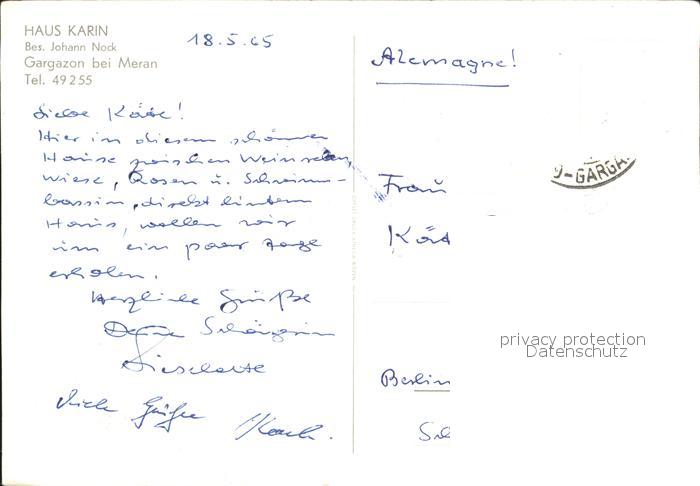 HAUS KARIN
Bes. Johann Nock
Gargazon bei Meran
Tel. 49255
18.5.65
Liebe Käte!
Hier in diesem schönen
Hause zwischen Weinreben,
Wiese, Rosen u. Schwimm-
bassin, direkt hinterm
Haus, wollen wir
uns ein paar Tage
erholen.
Herzliche Grüße
Deine Schwägerin
Lieselotte
Viele Grüße
Alemagne!
Frau
Kät
Berlin
Sch
O-GARGA
privacy protection
Datenschutz